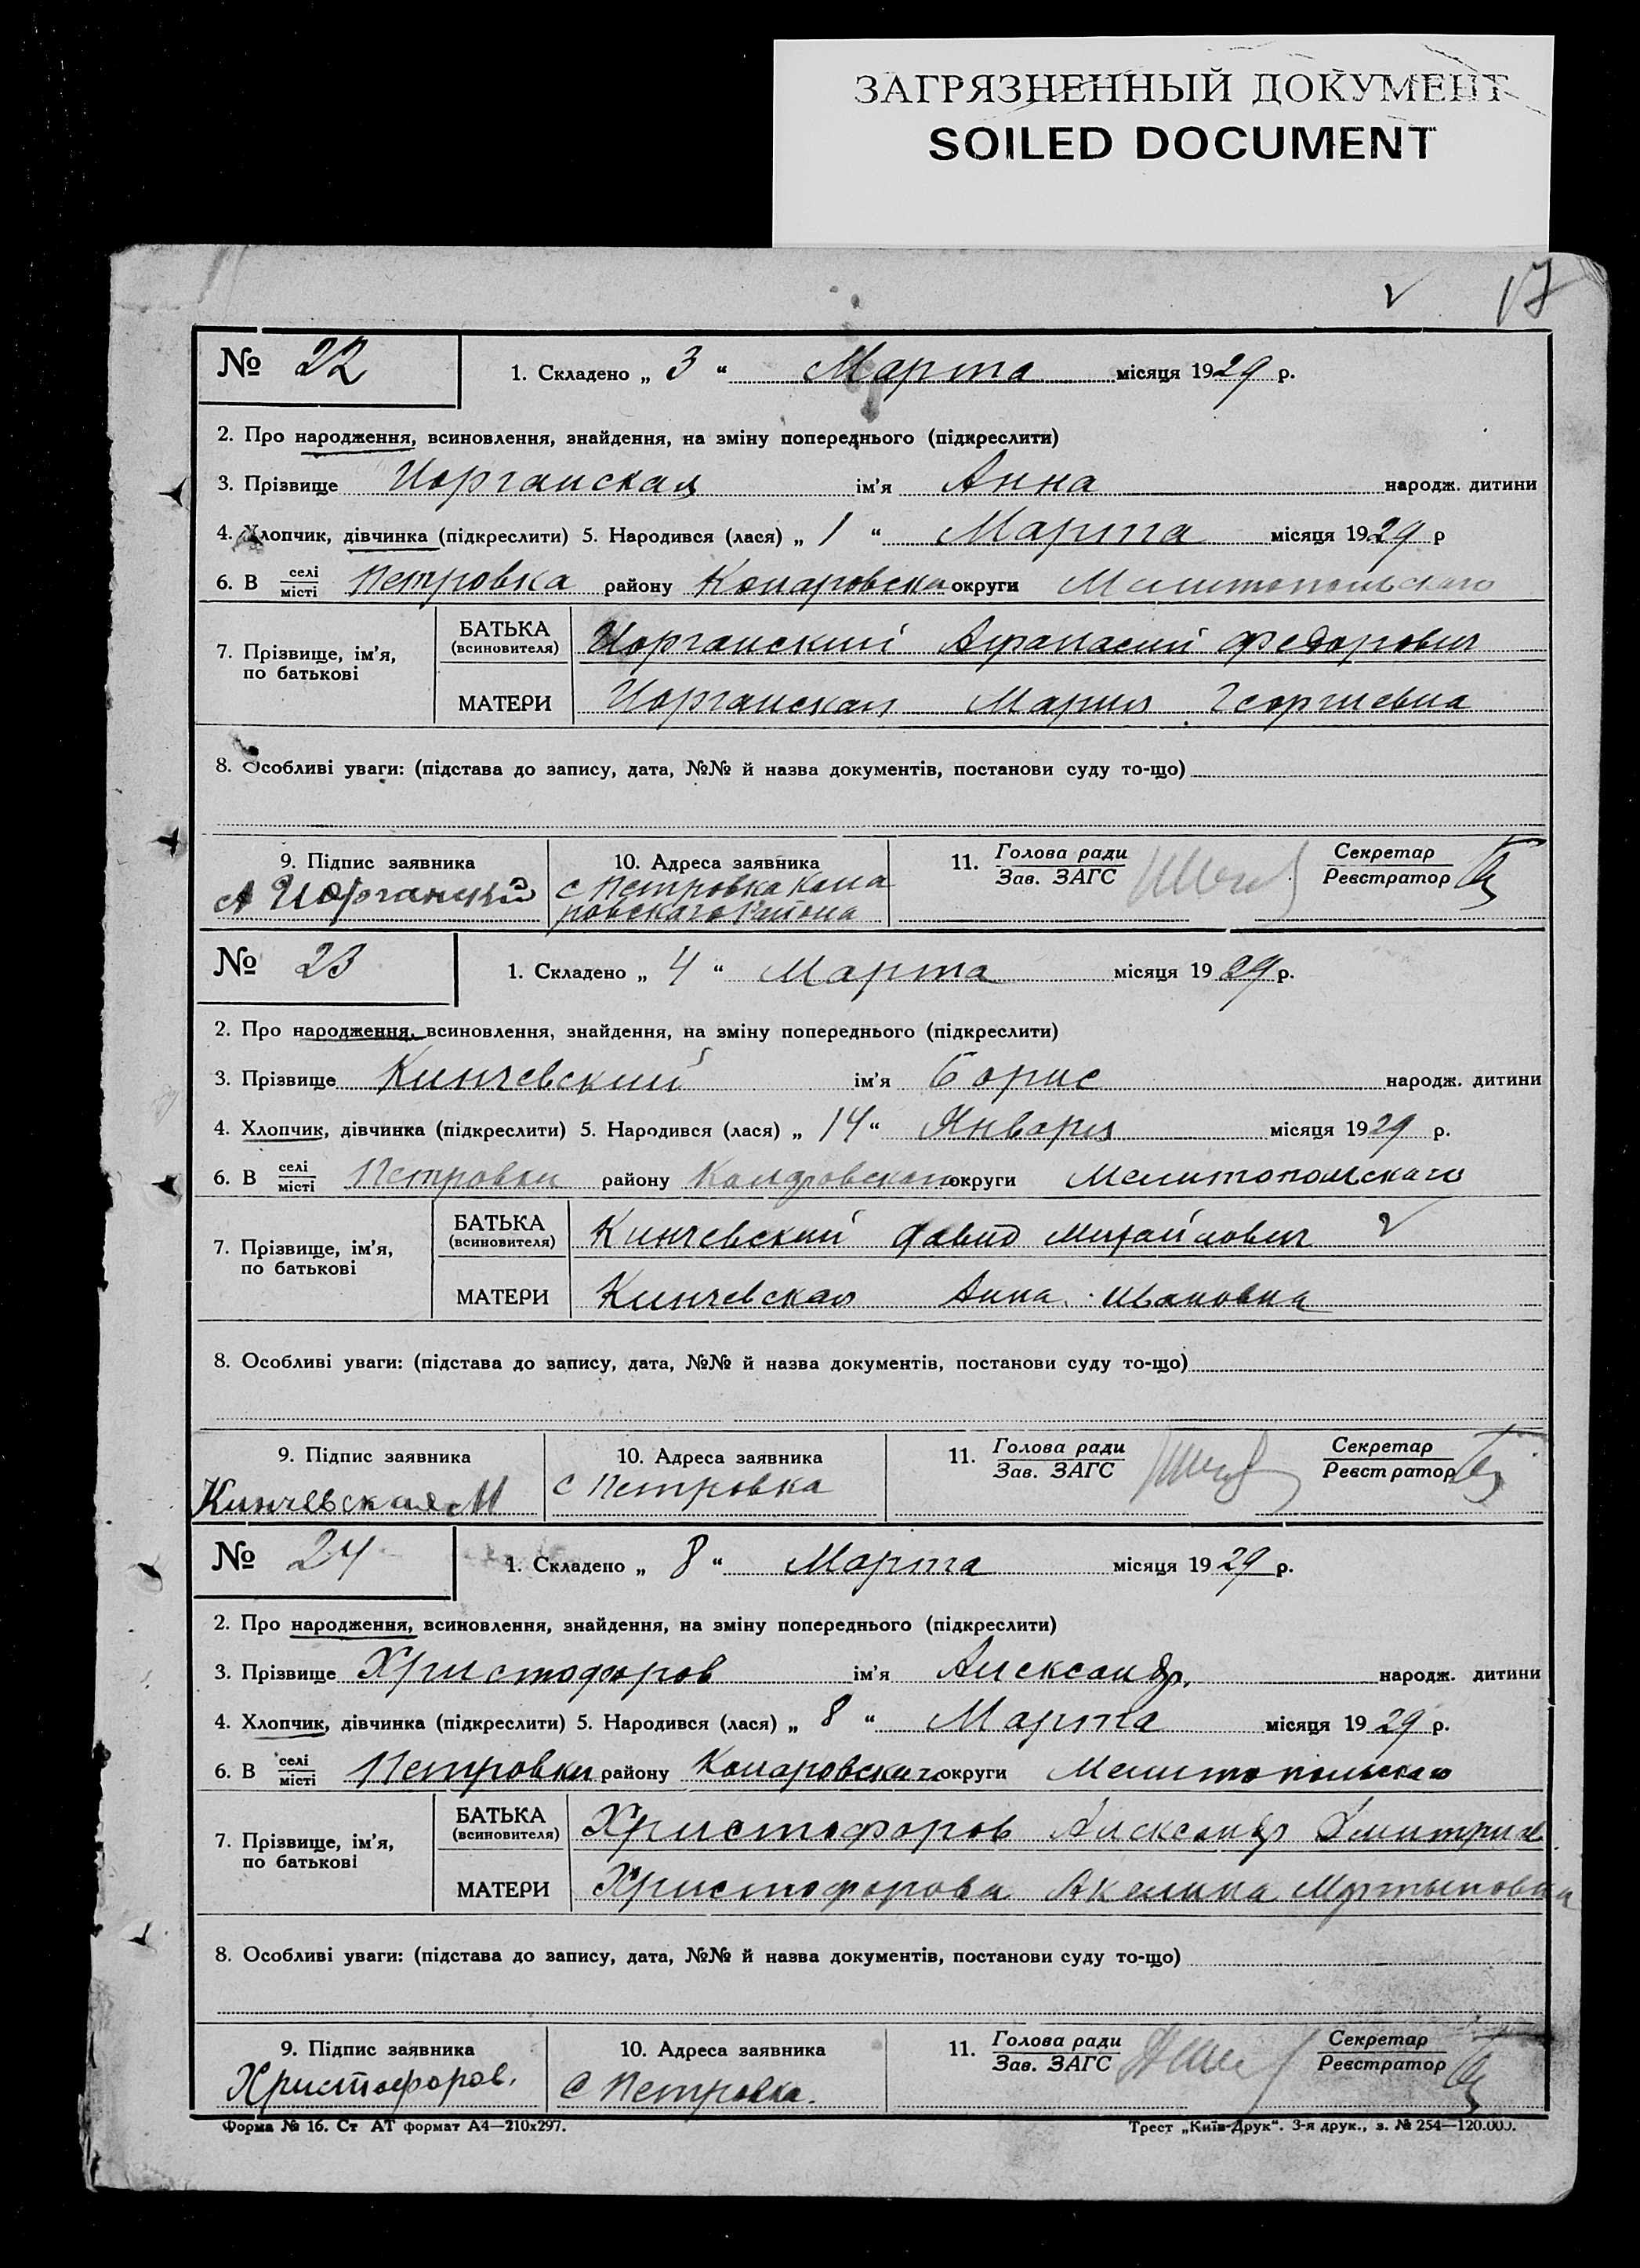 ЗАГРЯЗНЕННЫЙ ДОКУМЕНТ
SOILED DOCUMENT
17
№ 22 1. Складено „ 3 “ Марта місяця 1929 р.
2. Про народження, всиновлення, знайдення, на зміну попереднього (підкреслити)
3. Прізвище Иорганская ім'я Анна народж. дитини
4. Хлопчик, дівчинка (підкреслити) 5. Народився (лася) „ 1 “ Марта місяця 1929 р
6. В селі/місті Петровка району округи Мелитопольского
7. Прізвище, ім'я, по батькові
БАТЬКА (всиновителя) Иорганский Афанасий Федорович
МАТЕРИ Иорганская Мария Георгиевна
8. Особливі уваги: (підстава до запису, дата, №№ й назва документів, постанови суду то-що)
9. Підпис заявника 10. Адреса заявника 11. Голова ради/Зав. ЗАГС Секретар/Реєстратор
А Иорганский с Петровка Кола
ровского Района
№ 23 1. Складено „ 4 “ Марта місяця 1929 р.
2. Про народження, всиновлення, знайдення, на зміну попереднього (підкреслити)
3. Прізвище Кинчевский ім'я Борис народж. дитини
4. Хлопчик, дівчинка (підкреслити) 5. Народився (лася) „ 14 “ Января місяця 1929 р.
6. В селі/місті Петровки району Коларовского округи Мелитопольскаго
7. Прізвище, ім'я, по батькові
БАТЬКА (всиновителя) Кинчевский Давид Михайлович
МАТЕРИ Кинчевская Анна Ивановна
8. Особливі уваги: (підстава до запису, дата, №№ й назва документів, постанови суду то-що)
9. Підпис заявника 10. Адреса заявника 11. Голова ради/Зав. ЗАГС Секретар/Реєстратор
Кинчевская М с Петровка
№ 24 1. Складено „ 8 “ Марта місяця 1929 р.
2. Про народження, всиновлення, знайдення, на зміну попереднього (підкреслити)
3. Прізвище Христофоров ім'я Александр. народж. дитини
4. Хлопчик, дівчинка (підкреслити) 5. Народився (лася) „ 8 “ Марта місяця 1929 р.
6. В селі/місті Петровки району Коларовскаго округи Мелитопольскаго
7. Прізвище, ім'я, по батькові
БАТЬКА (всиновителя) Христофоров Александр Дмитрие.
МАТЕРИ Христофорова Акелина Мартыновна
8. Особливі уваги: (підстава до запису, дата, №№ й назва документів, постанови суду то-що)
9. Підпис заявника 10. Адреса заявника 11. Голова ради/Зав. ЗАГС Секретар/Реєстратор
Христофоров. с Петровка.
Форма № 16. Ст АТ формат А4—210х297. Трест „Київ-Друк“. 3-я друк., з. № 254—120.000.